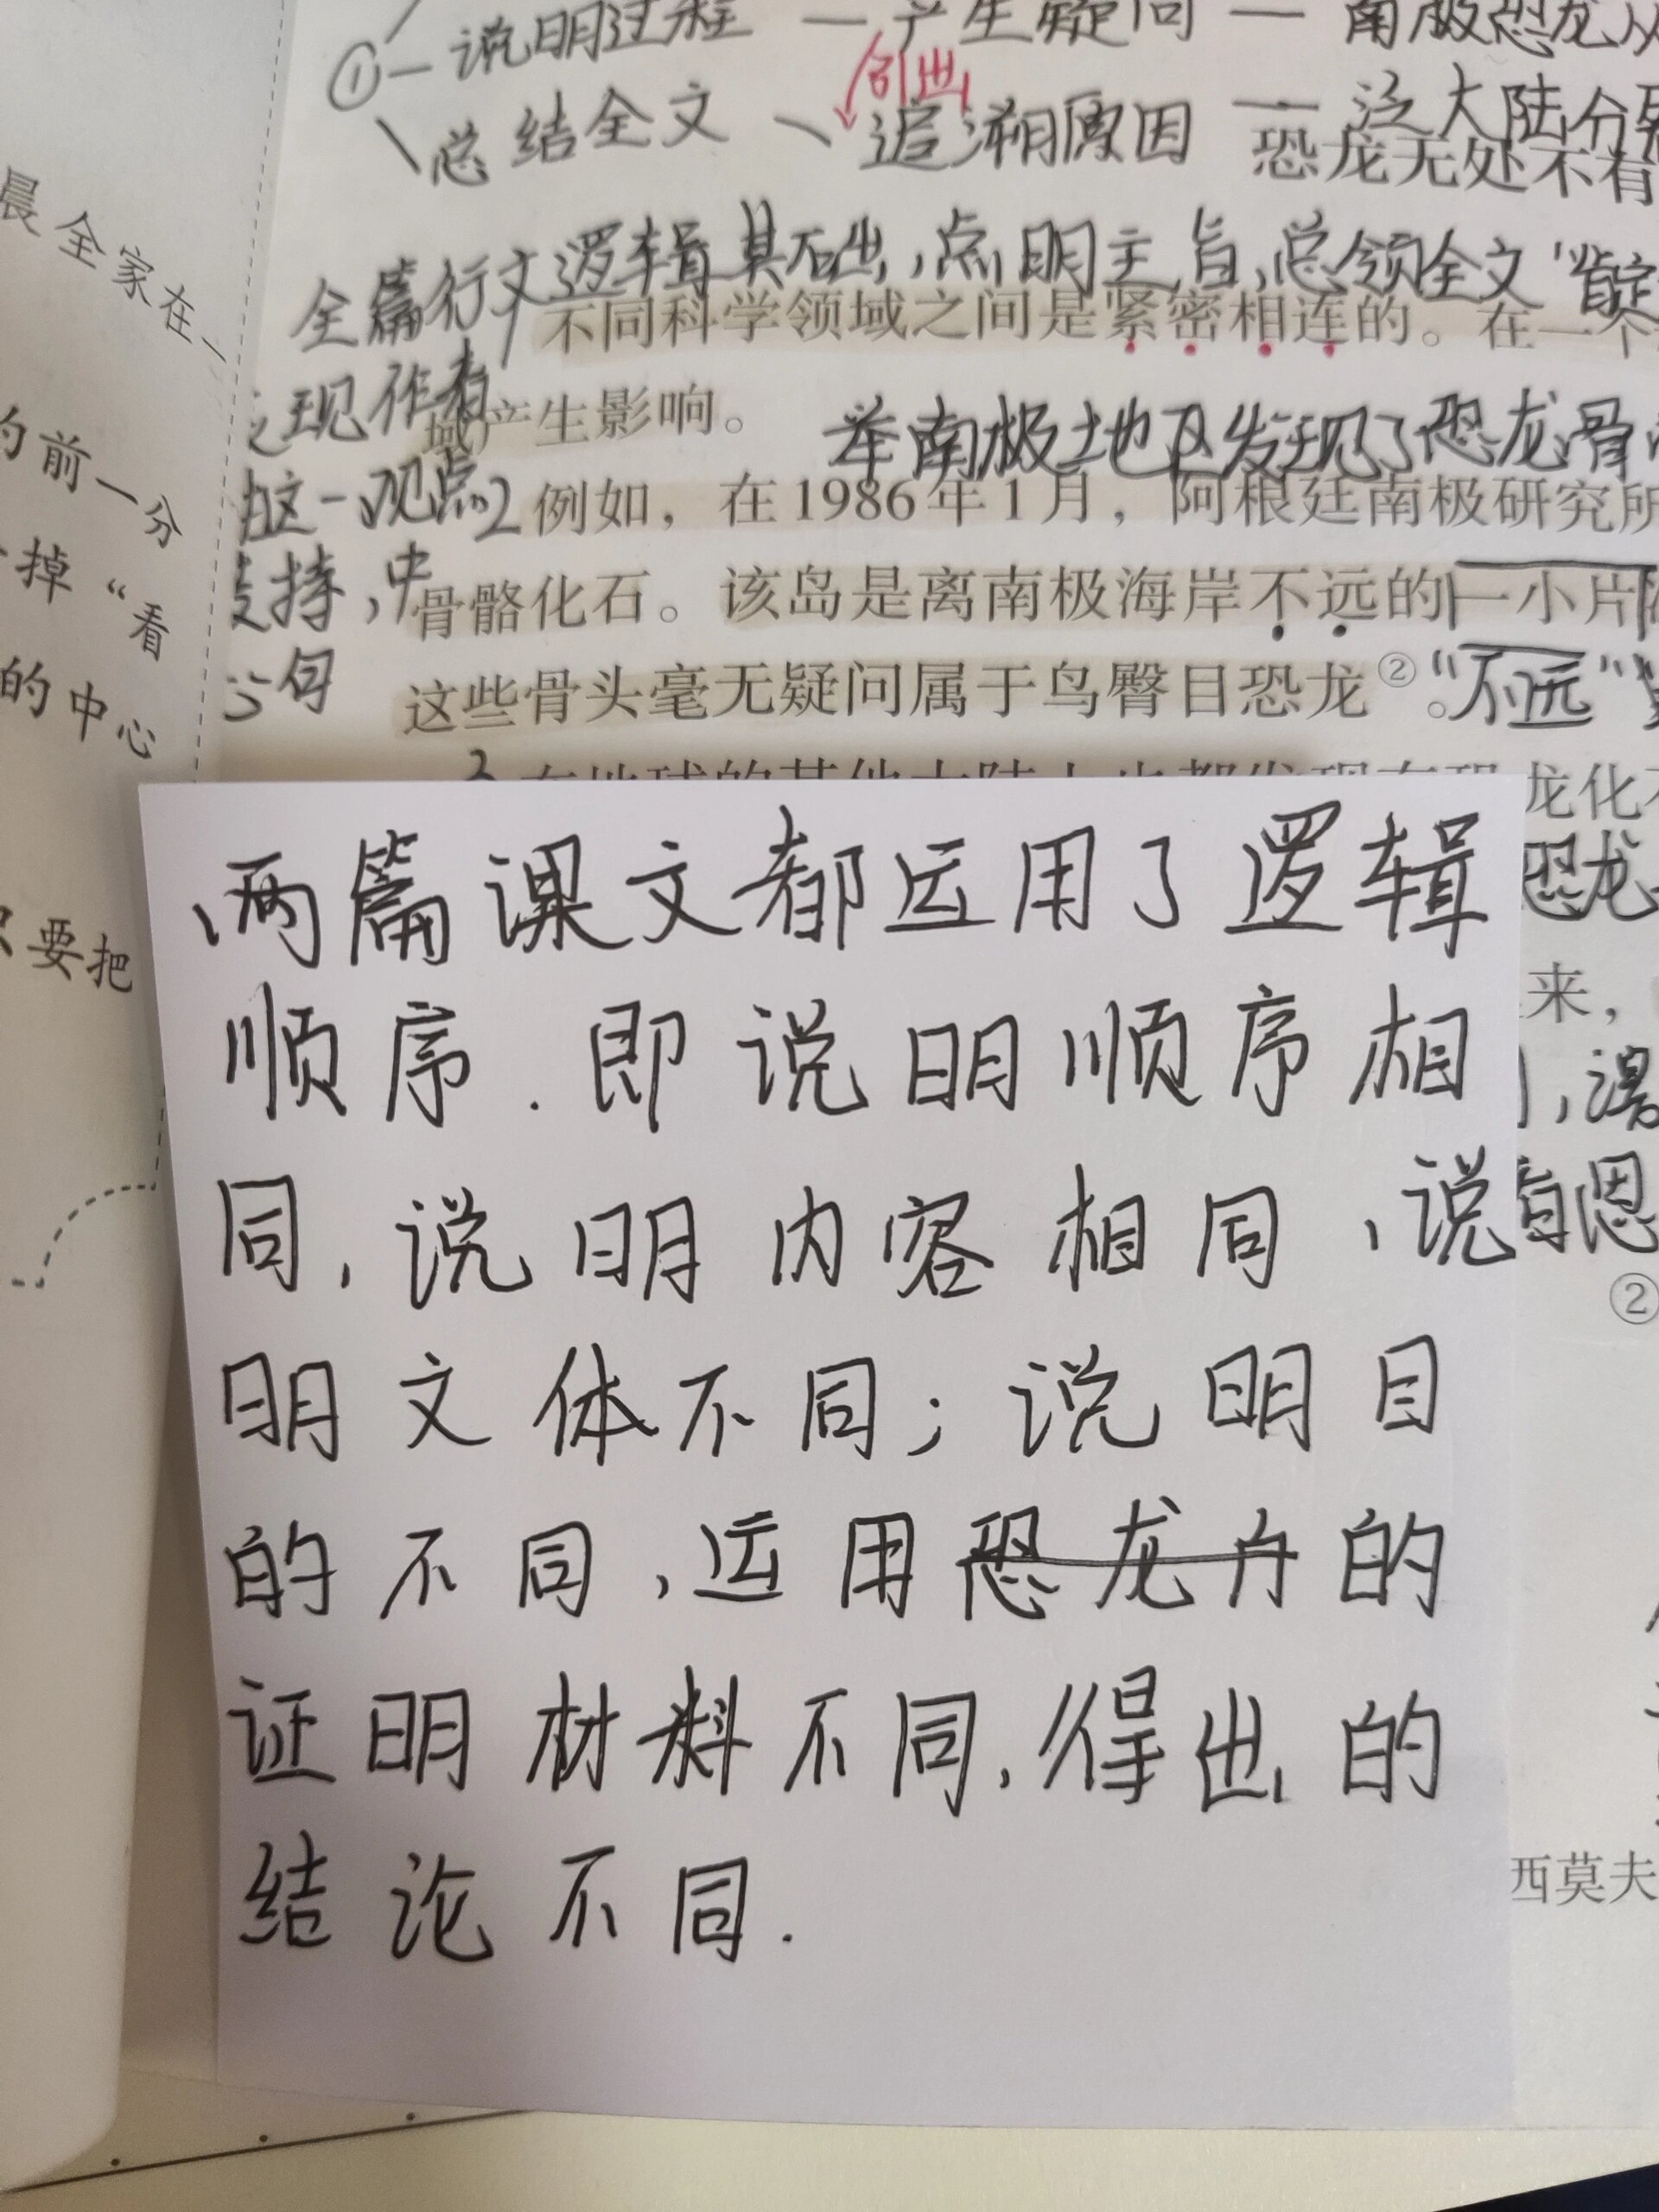 ①—说明过程 — 产生疑问 — 南极恐龙从
引出
总结全文 追溯原因 — 泛大陆分裂
恐龙无处不有
晨全家在一
全篇行文逻辑基础，点明主旨，总领全文"肯定
不同科学领域之间是紧密相连的。在一个
现作者
域产生影响。
举南极地区发现了恐龙骨
的前一分
这一观点
2 例如，在1986年1月，阿根廷南极研究所
掉"看
持，中
骨骼化石。该岛是离南极海岸不远的一小片
的中心
句
这些骨头毫无疑问属于鸟臀目恐龙②。"不远"
龙化
两篇课文都运用了逻辑
恐龙
要把
顺序.即说明顺序相
来，
同,说明内容相同,说
②
明文体不同;说明目
的不同,运用恐龙的
证明材料不同,得出的
结论不同.
西莫夫